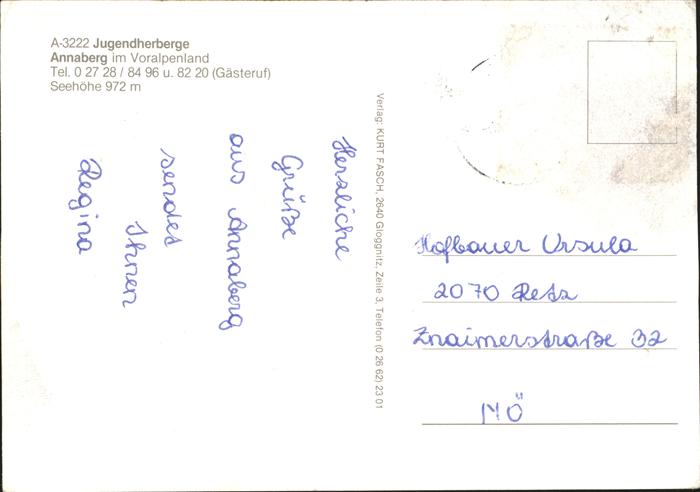 A-3222 Jugendherberge
Annaberg im Voralpenland
Tel. 0 27 28 / 84 96 u. 82 20 (Gästeruf)
Seehöhe 972 m
Herzliche
Grüße
aus Annaberg
sendet
Ihnen
Regina
Verlag: KURT FASCH, 2640 Gloggnitz, Zeile 3, Telefon (0 26 62) 23 01
Hofbauer Ursula
2070 Retz
Znaimerstraße 32
NÖ